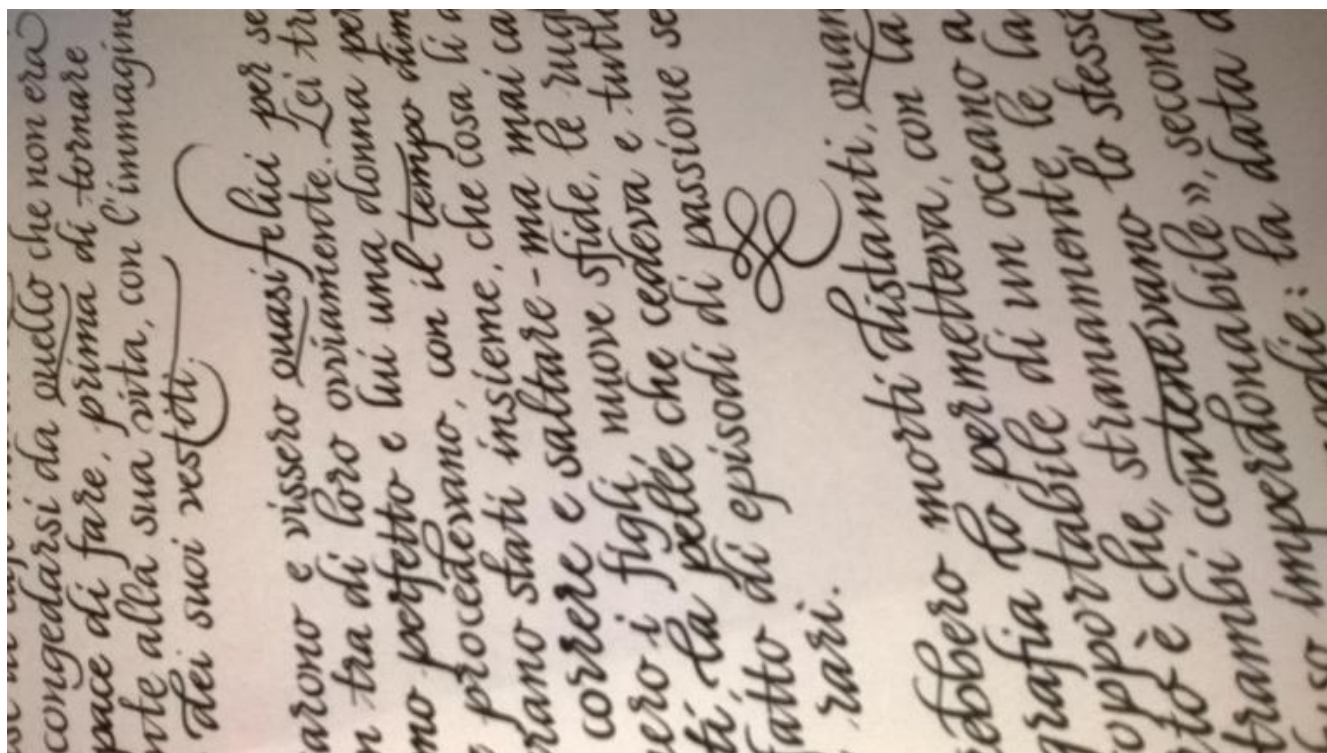 congedarsi da quello che non era
pace di fare, prima di tornare
nte alla sua vita, con l'immagine
dei suoi vestiti.
arono e vissero quasi felici per se
n tra di loro ovviamente. Lei tro
mo perfetto e lui una donna per
procedevano, con il tempo dim
rano stati insieme, che cosa li a
correre e saltare - ma mai ca
ero i figli, nuove sfide, le rug
ti, la pelle che cedeva e tutto
fatto di episodi di passione se
rari.
ebbero morti distanti, quan
grafia lo permetteva, con la
opportabile di un oceano a
to è che, stranamente, le la
trambi contenevano lo stesso
imperdonabile», second
la data d